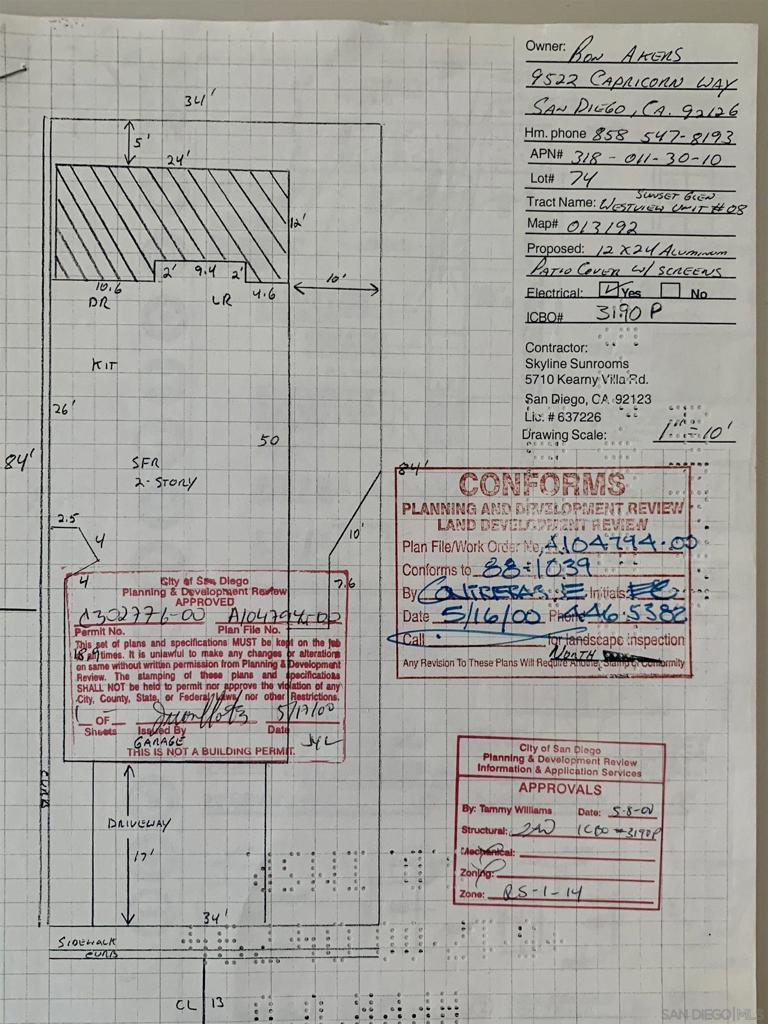 Owner: RON AKERS
9522 CAPRICORN WAY
SAN DIEGO, CA. 92126
Hm. phone 858 547-8193
APN# 318-011-30-10
Lot# 74
SUNSET GLEN
Tract Name: WESTVIEW UNIT #08
Map# 013192
Proposed: 12 X 24 ALUMINUM
PATIO COVER W/ SCREENS
Electrical: Yes No
ICBO# 3190 P
Contractor:
Skyline Sunrooms
5710 Kearny Villa Rd.
San Diego, CA 92123
Lic. # 637226
Drawing Scale: 1" = 10'
34'
5'
24'
12'
2' 9.4 2'
10.6
4.6
10'
DR
LR
KIT
26'
50
84'
84'
SFR
2-STORY
2.5
4
4
10'
7.6
CONFORMS
PLANNING AND DEVELOPMENT REVIEW
LAND DEVELOPMENT REVIEW
Plan File/Work Order No. A104794-00
Conforms to 88-1039
By CONTRERAS E Initials
Date 5/16/00 Phone 446.5382
Call for landscape inspection
NORTH
Any Revision To These Plans Will Require Another Stamp of Conformity
City of San Diego
Planning & Development Review
APPROVED
A302776-00 A104794-00
Permit No. Plan File No.
This set of plans and specifications MUST be kept on the job
at all times. It is unlawful to make any changes or alterations
on same without written permission from Planning & Development
Review. The stamping of these plans and specifications
SHALL NOT be held to permit nor approve the violation of any
City, County, State, or Federal laws nor other Restrictions.
1 OF 5/17/00
Sheets Issued By Date
GARAGE
THIS IS NOT A BUILDING PERMIT.
City of San Diego
Planning & Development Review
Information & Application Services
APPROVALS
By: Tammy Williams Date: 5-8-00
Structural: ICBO #3190P
Mechanical:
Zoning:
Zone: RS-1-14
CURB
DRIVEWAY
17'
34'
SIDEWALK
CURB
CL 13
SAN DIEGO MLS